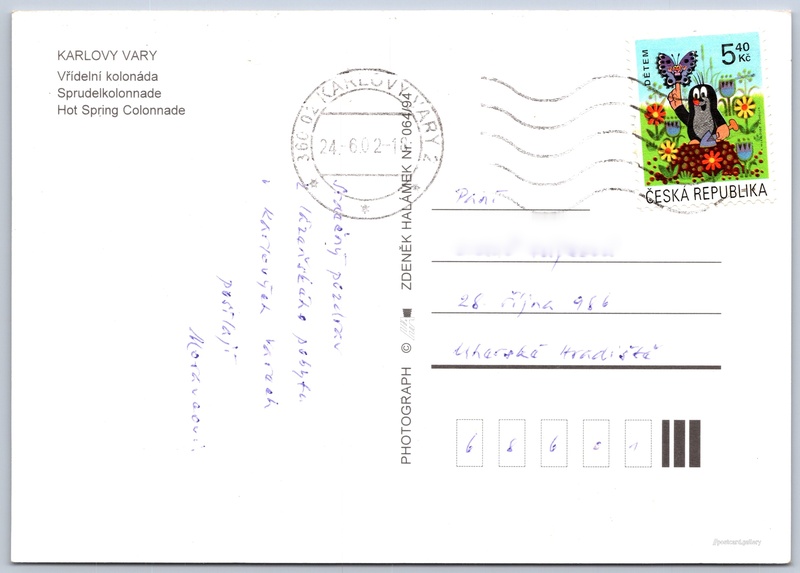 KARLOVY VARY
Vřídelní kolonáda
Sprudelkolonnade
Hot Spring Colonnade
360 02 KARLOVY VARY 2
24.-6.02-18
DĚTEM
5 40 Kč
ČESKÁ REPUBLIKA
Srdečný pozdrav
z lázeňského pobytu
v Karlových Varech
posílají
Moravcovi.
PHOTOGRAPH © ZDENĚK HALÁMEK NR. 064/94
Paní
28 října 986
Uherské Hradiště
6 8 6 0 1
postcard.gallery